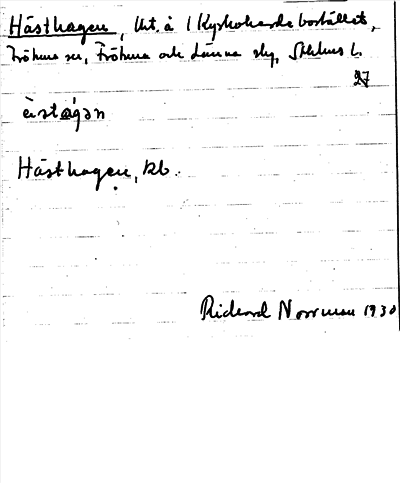 Hästhagen, Urt. å 1 Kyrkoherdebostället,
Fröhuna sn, Fröhuna och Länna skg, Sthlms l.
27
ästagən
Hästhagen, kb.
Rickard Norrman 1930